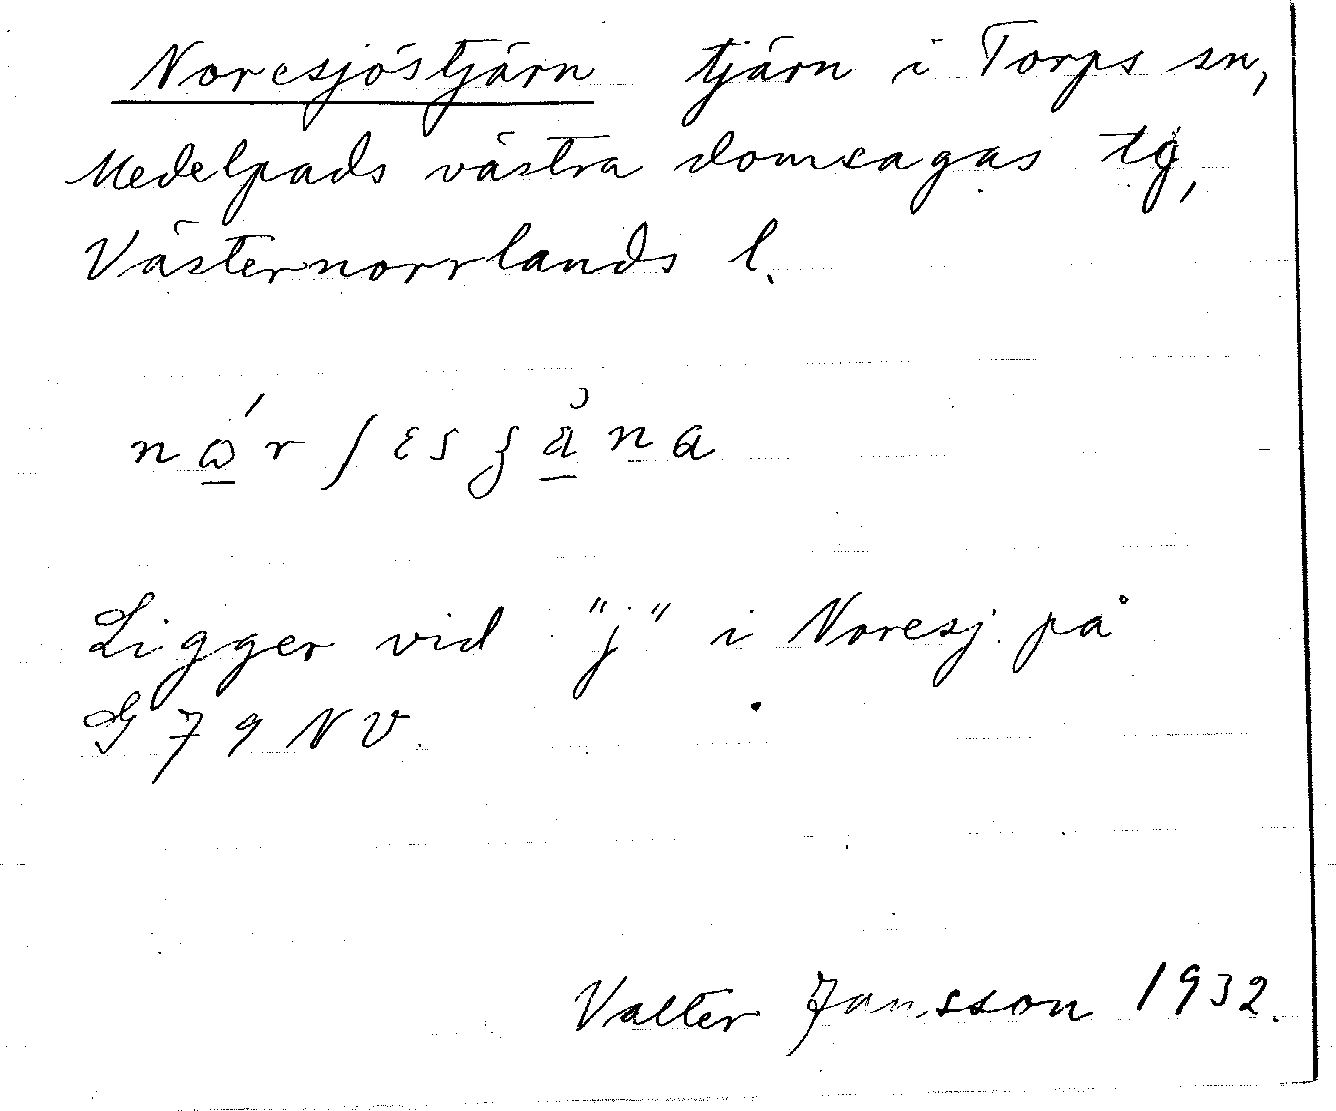 Noresjöstjärn tjärn i Torps sn,
Medelpads västra domsagas tg,
Västernorrlands l.
Ligger vid "j" i Noresj. på
G 79 NV.
Valter Jansson 1932.